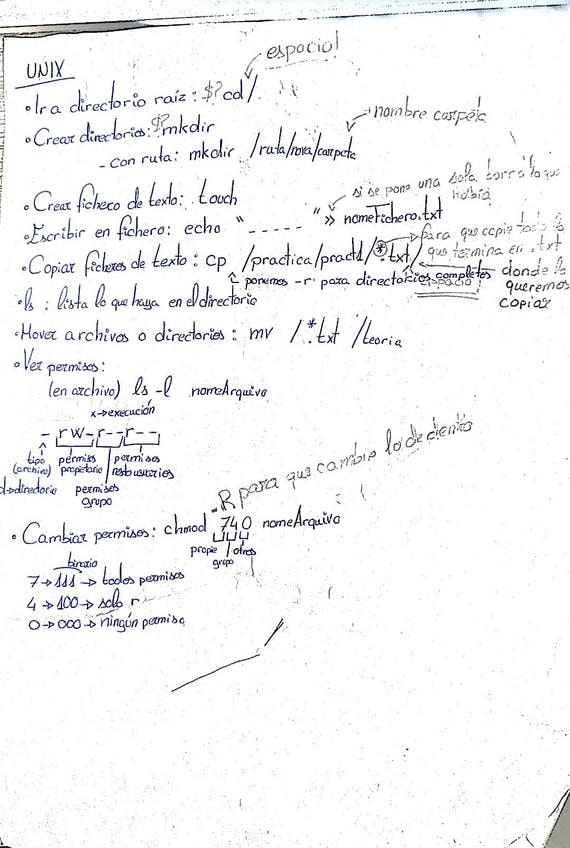 espacio!
UNIX
• Ir a directorio raíz: $? cd /
nombre carpeta
• Crear directorios: $? mkdir
- con ruta: mkdir /ruta/nova/carpeta
si se pone una sola borra lo que había
• Crear fichero de texto: touch
• Escribir en fichero: echo "-----" >> nomeFichero.txt
para que copie todo lo que termina en .txt
• Copiar ficheros de texto: cp /practica/pract1/*.txt/
ponemos -r para directorios completos
espacio
donde lo queremos copiar
• ls : lista lo que haya en el directorio
• Mover archivos o directorios: mv /*.txt /teoria
• Ver permisos:
(en archivo) ls -l nomeArquivo
x → execución
- rw-r--r--
tipo (archivo) permisos propietario permisos resto usuarios
d → directorio permisos grupo
-R para que cambie lo de dentro
• Cambiar permisos: chmod 740 nomeArquivo
propie otros
grupo
binario
7 → 111 → todos permisos
4 → 100 → solo r
0 → 000 → ningún permiso